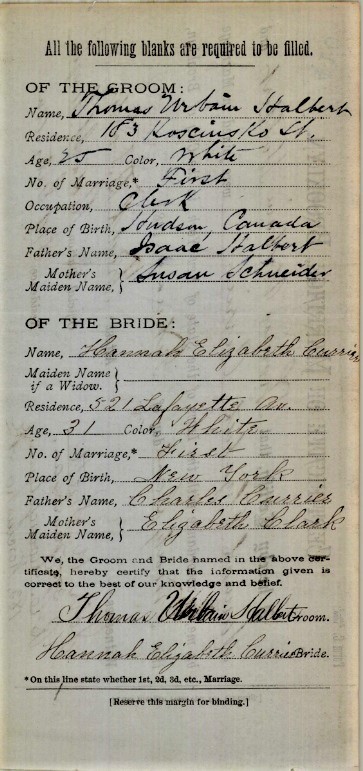 All the following blanks are required to be filled.
OF THE GROOM:
Name, Thomas Urbain Halbert
Residence, 183 Kosciusko St.
Age, 25 Color, White
No. of Marriage,* First
Occupation, Clerk
Place of Birth, Canada
Father's Name, Isaac Halbert
Mother's Maiden Name, Susan Schneider
OF THE BRIDE:
Name, Hannah Elizabeth Currier
Maiden Name if a Widow.
Residence, 521 Lafayette Av.
Age, 31 Color, White
No. of Marriage,* First
Place of Birth, New York
Father's Name, Charles Currier
Mother's Maiden Name, Elizabeth Clark
We, the Groom and Bride named in the above cer-
tificate, hereby certify that the information given is
correct to the best of our knowledge and belief.
Thomas Urbain Halbert Groom.
Hannah Elizabeth Currier Bride.
*On this line state whether 1st, 2d, 3d, etc., Marriage.
[Reserve this margin for binding.]